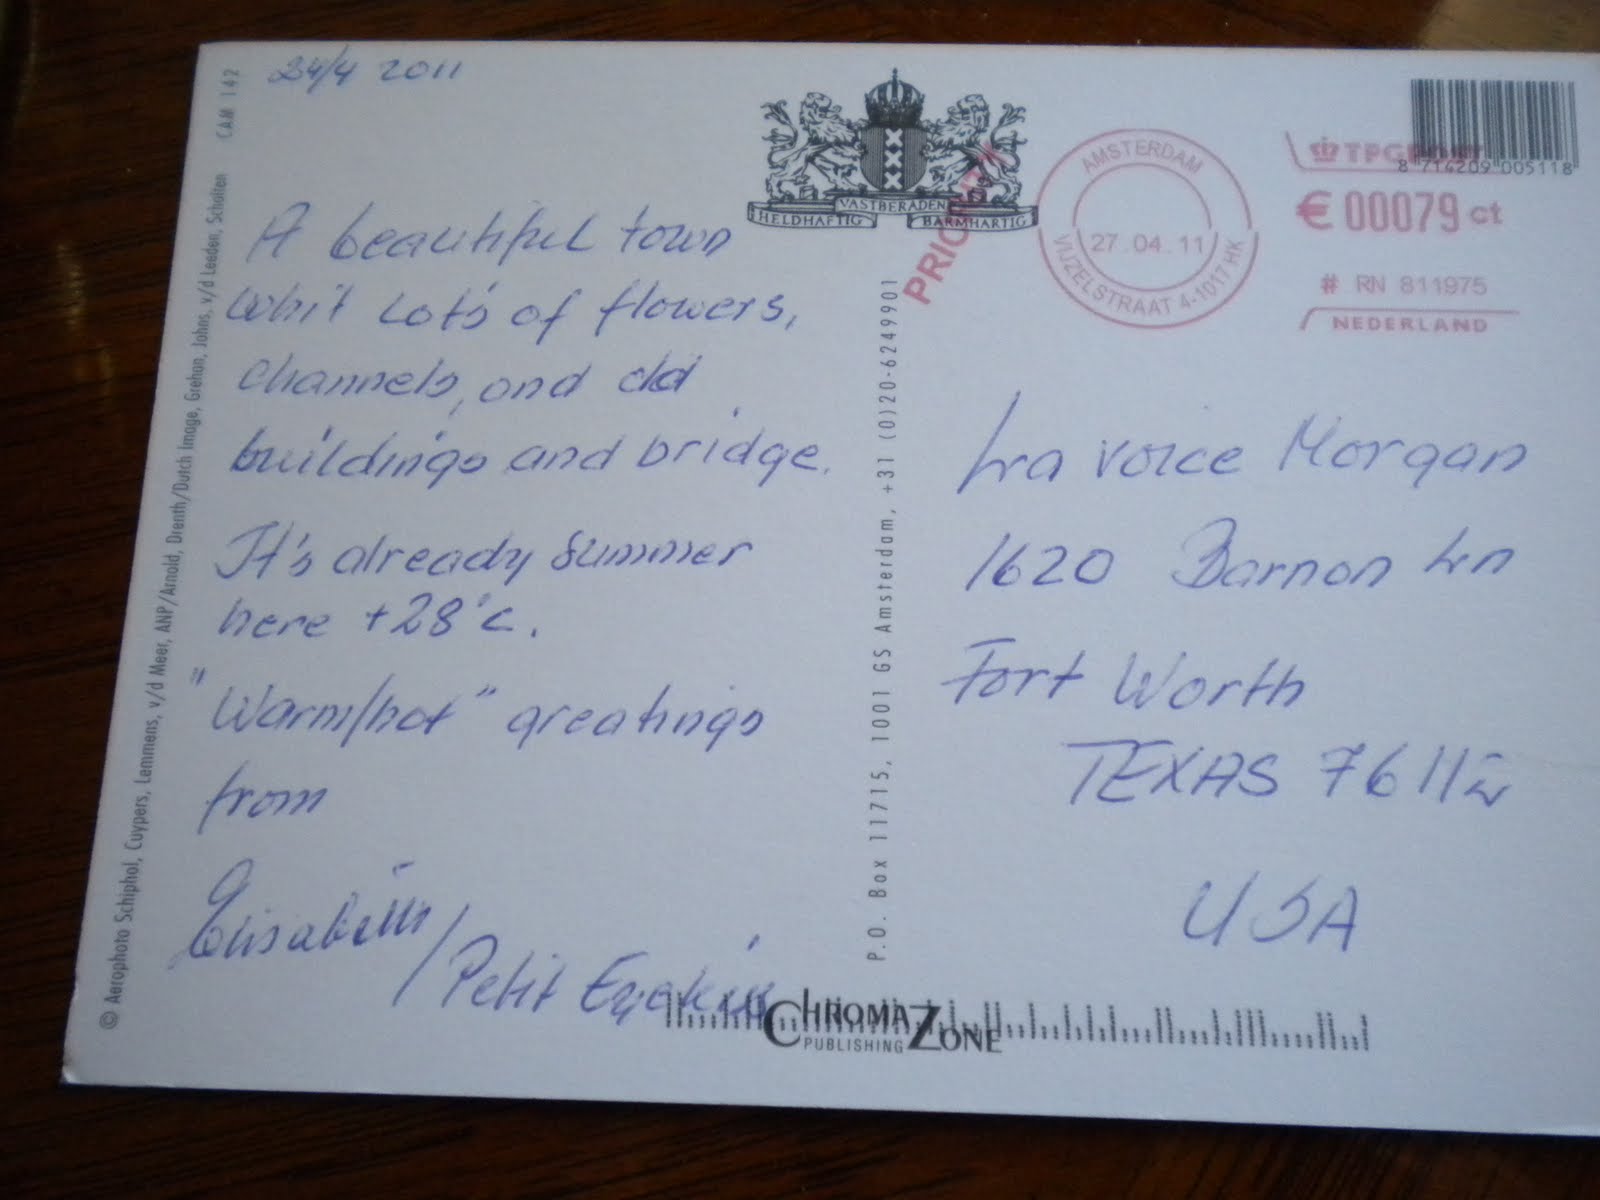 24/4 2011
A beautiful town
whit Lot's of flowers,
channels, and old
buildings and bridge.
It's already summer
here +28°C.
"Warm/hot" greatings
from
Elisabeth
/Petit
VASTBERADEN
HELDHAFTIG BARMHARTIG
PRIORITY
AMSTERDAM
27.04.11
VIJZELSTRAAT 4-1017 HK
TPGPOST
8 714209 005118
€ 00079 ct
# RN 811975
NEDERLAND
Lra voice Morgan
1620 Barnon Ln
Fort Worth
TEXAS 76112
USA
CAM 142
© Aerophoto Schiphol, Cuypers, Lemmens, v/d Meer, ANP/Arnold, Drenth/Dutch Image, Grehan, Johns, v/d Leeden, Scholten
P.O. Box 11715, 1001 GS Amsterdam, +31 (0)20-6249901
CHROMA ZONE
PUBLISHING